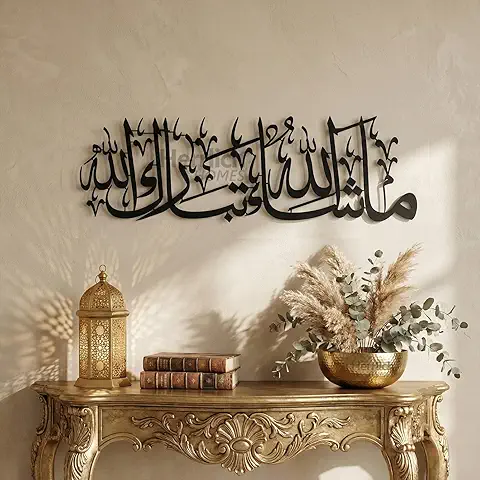 ما شاء الله تبارك الله
HOMES